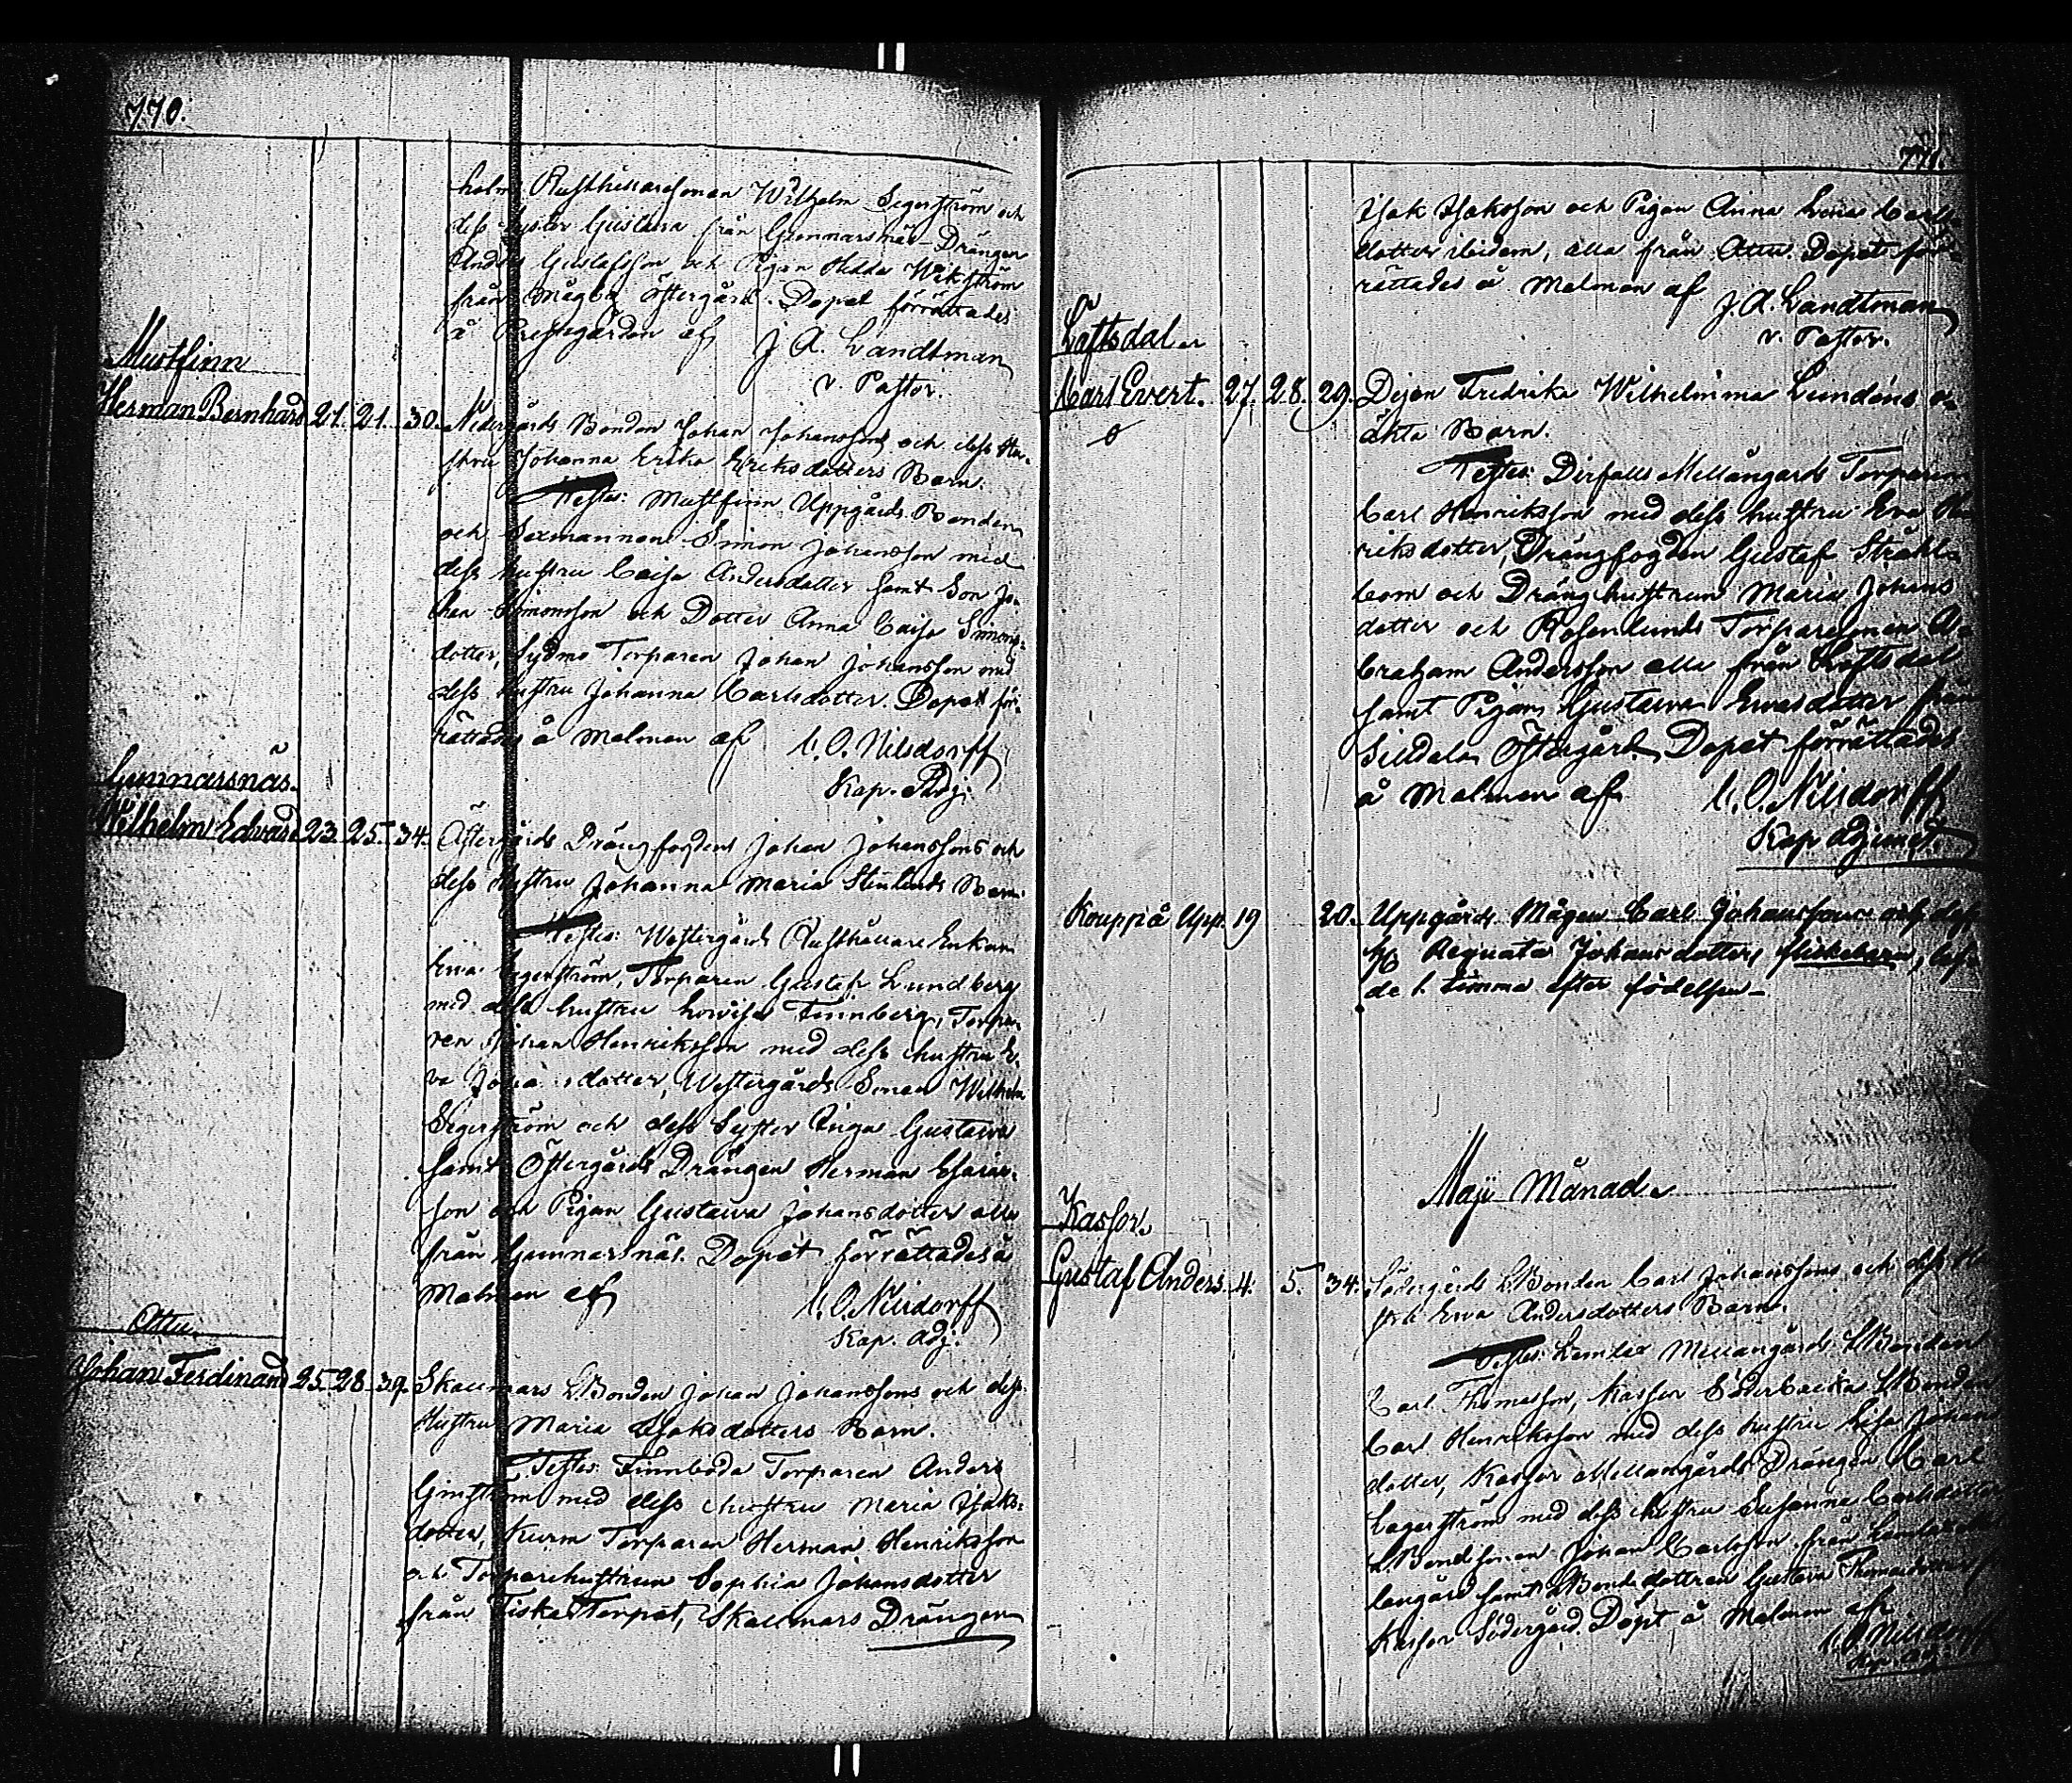 770.
holms Rusthållaresonen Wilhelm Segerström och
dess syster Gustava från Gunnarsnäs Drängen
Anders Gustafsson och Pigan Hedda Wikström
från Mågby Östergård. Dopet förrättades
å Prestgården af J. A. Landtman
v. Pastor.
Mustfinn
Herman Bernhard 21. 21. 30. Nedergårds Bonden Johan Johanssons och dess Hu-
stru Johanna Erika Eriksdotters Barn.
Testes: Mustfinn Uppgårds Bonden
och Sexmannen Simon Johansson med
dess hustru Caisa Andersdotter samt Son Jo-
han Simonsson och Dotter Anna Caisa Simons-
dotter, Torparen Johan Johansson med
dess hustru Johanna Carlsdotter. Dopet för-
rättades å Malmen af C. O. Nilsdorff
Kap. Adj.
Gunnarsnäs.
Wilhelm Edvard 23. 25. 34. Östergårds Drängfogdens Johan Johanssons och
dess Hustru Johanna Maria Stenlunds Barn.
Testes: Westergårds Rusthållare Enkan
Eva Segerström, Torparen Gustaf Lundberg
med dess hustru Lovisa Finnberg, Torpa-
ren Johan Henriksson med dess hustru E-
va Johansdotter, Westergårds Sonen Wilhelm
Segerström och dess Syster Inga Gustava
samt Östergårds Drängen Herman
son och Pigan Gustawa Johansdotter alla
från Gunnarsnäs. Dopet förrättades å
Malmen af C. O. Nilsdorff
Kap. Adj.
Attu.
Johan Ferdinand 25. 28. 39. Skallmars LBonden Johan Johanssons och dess
Hustru Maria Isaksdotters Barn.
Testes: Finnboda Torparen Anders
med dess hustru Maria Isaks-
dotter, Kurm Torparen Herman Henriksson
och Torparehustrun Sophia Johansdotter
från Fiske Torpet, Skallmars Drängen
771.
Isak Isaksson och Pigan Anna Lena Carls-
dotter ibidem, alla från Attu. Dopet för-
rättades å Malmen af J. A. Landtman
v. Pastor.
Loftsdal
Carl Evert. 27. 28. 29. Dejan Fredrika Wilhelmina Lindéns o-
äkta Barn.
Testes: Mellangårds Torparen
Carl Henriksson med dess hustru Eva Hen
riksdotter, Drängfogden Gustaf Stråhl-
bom och Dräng hustrun Maria Johans
dotter och Rosenlunds Torparesonen A-
braham Andersson alla från Loftsdal
samt Pigan Gustawa Ewasdotter från
Silldala Östergård. Dopet förrättades
å Malmen af C. O. Nilsdorff
Kap. Adjunct.
Kouppiå Upp. 19 20. Uppgårds Mågen Carl Johanssons och dess
H. Regnata Johansdotters flickebarn, lef-
de 1. timma efter födelsen
Maji Månad
Kassor.
Gustaf Anders. 4. 5. 34. Södergårds LBonden Carl Johanssons och dess Hu
stru Ewa Andersdotters Barn.
Testes: Lemlax Mellangårds LBonden
Carl Thomasson, Kassor Söderbacka LBonden
Carl Henriksson med dess hustru Lisa Johans
dotter, Kassor Mellangårds Drängen Carl
Lagerström med dess hustru Susanna Carlsdotter
LBondsonen Johan Carlsson från Lemlax Mel
langård samt LBonde dottren Gustava Thomasdotter
Kassor Södergård. Döpt å Malmen af
C. O. Nilsdorff
Kap. Adj.